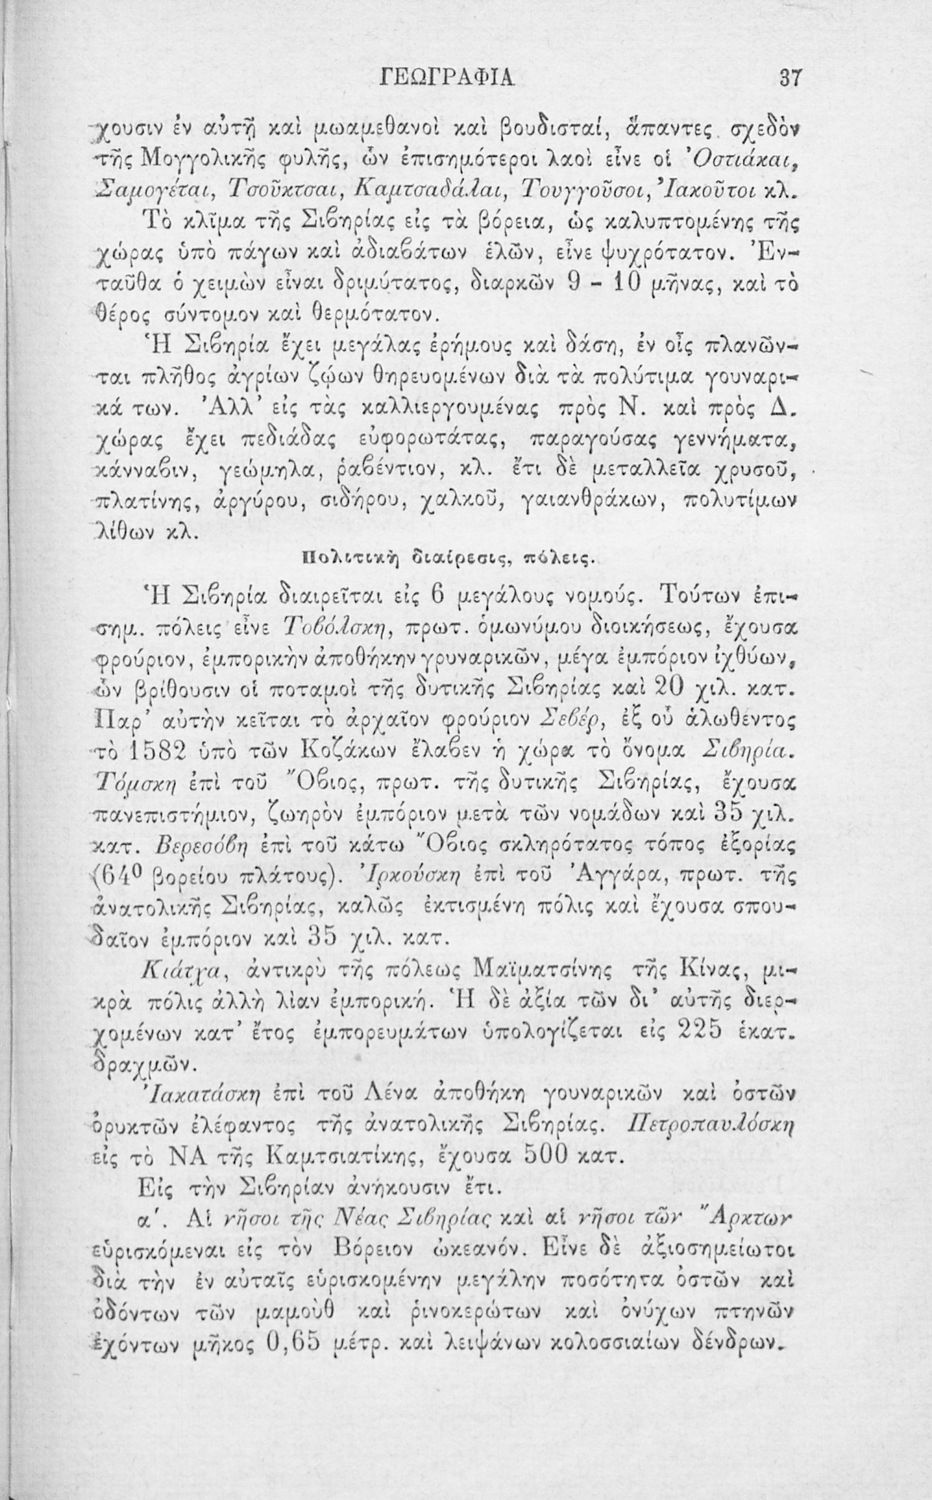 ΓΕΩΓΡΑΦΙΑ 37
χουσιν ἐν αὐτῇ καὶ μωαμεθανοὶ καὶ βουδισταί, ἅπαντες σχεδὸν
τῆς Μογγολικῆς φυλῆς, ὧν ἐπισημότεροι λαοὶ εἶνε οἱ Ὀστιάκαι,
Σαμογέται, Τσοῦκτσαι, Καμτσαδάλαι, Τουγγοῦσοι, Ἰακοῦτοι κλ.
Τὸ κλῖμα τῆς Σιβηρίας εἰς τὰ βόρεια, ὡς καλυπτομένης τῆς
χώρας ὑπὸ πάγων καὶ ἀδιαβάτων ἑλῶν, εἶνε ψυχρότατον. Ἐν-
ταῦθα ὁ χειμὼν εἶναι δριμύτατος, διαρκῶν 9 - 10 μῆνας, καὶ τὸ
θέρος σύντομον καὶ θερμότατον.
Ἡ Σιβηρία ἔχει μεγάλας ἐρήμους καὶ δάση, ἐν οἷς πλανῶν-
ται πλῆθος ἀγρίων ζῴων θηρευομένων διὰ τὰ πολύτιμα γουναρι-
κά των. Ἀλλ’ εἰς τὰς καλλιεργουμένας πρὸς Ν. καὶ πρὸς Δ.
χώρας ἔχει πεδιάδας εὐφορωτάτας, παραγούσας γεννήματα,
κάνναβιν, γεώμηλα, ῥαβέντιον, κλ. ἔτι δὲ μεταλλεῖα χρυσοῦ,
πλατίνης, ἀργύρου, σιδήρου, χαλκοῦ, γαιανθράκων, πολυτίμων
λίθων κλ.
Πολιτικὴ διαίρεσις, πόλεις.
Ἡ Σιβηρία διαιρεῖται εἰς 6 μεγάλους νομούς. Τούτων ἐπι-
σημ. πόλεις εἶνε Τοβόλσκη, πρωτ. ὁμωνύμου διοικήσεως, ἔχουσα
φρούριον, ἐμπορικὴν ἀποθήκην γρυναρικῶν, μέγα ἐμπόριον ἰχθύων,
ὧν βρίθουσιν οἱ ποταμοὶ τῆς δυτικῆς Σιβηρίας καὶ 20 χιλ. κατ.
Παρ’ αὐτὴν κεῖται τὸ ἀρχαῖον φρούριον Σεβέρ, ἐξ οὗ ἁλωθέντος
τὸ 1582 ὑπὸ τῶν Κοζάκων ἔλαβεν ἡ χώρα τὸ ὄνομα Σιβηρία.
Τόμσκη ἐπὶ τοῦ Ὄβιος, πρωτ. τῆς δυτικῆς Σιβηρίας, ἔχουσα
πανεπιστήμιον, ζωηρὸν ἐμπόριον μετὰ τῶν νομάδων καὶ 35 χιλ.
κατ. Βερεσόβη ἐπὶ τοῦ κάτω Ὄβιος σκληρότατος τόπος ἐξορίας
(64⁰ βορείου πλάτους). Ἰρκούσκη ἐπὶ τοῦ Ἀγγάρα, πρωτ. τῆς
ἀνατολικῆς Σιβηρίας, καλῶς ἐκτισμένη πόλις καὶ ἔχουσα σπου-
δαῖον ἐμπόριον καὶ 35 χιλ. κατ.
Κιάτχα, ἀντικρὺ τῆς πόλεως Μαϊματσίνης τῆς Κίνας, μι-
κρὰ πόλις ἀλλὴ λίαν ἐμπορική. Ἡ δὲ ἀξία τῶν δι’ αὐτῆς διερ-
χομένων κατ’ ἔτος ἐμπορευμάτων ὑπολογίζεται εἰς 225 ἑκατ.
δραχμῶν.
Ἰακατάσκη ἐπὶ τοῦ Λένα ἀποθήκη γουναρικῶν καὶ ὀστῶν
ὀρυκτῶν ἐλέφαντος τῆς ἀνατολικῆς Σιβηρίας. Πετροπαυλόσκη
εἰς τὸ ΝΑ τῆς Καμτσιατίκης, ἔχουσα 500 κατ.
Εἰς τὴν Σιβηρίαν ἀνήκουσιν ἔτι.
α΄. Αἱ νῆσοι τῆς Νέας Σιβηρίας καὶ αἱ νῆσοι τῶν Ἄρκτων
εὑρισκόμεναι εἰς τὸν Βόρειον ὠκεανόν. Εἶνε δὲ ἀξιοσημείωτοι
διὰ τὴν ἐν αὐταῖς εὑρισκομένην μεγάλην ποσότητα ὀστῶν καὶ
ὀδόντων τῶν μαμοὺθ καὶ ῥινοκερώτων καὶ ὀνύχων πτηνῶν
ἐχόντων μῆκος 0,65 μέτρ. καὶ λειψάνων κολοσσιαίων δένδρων.